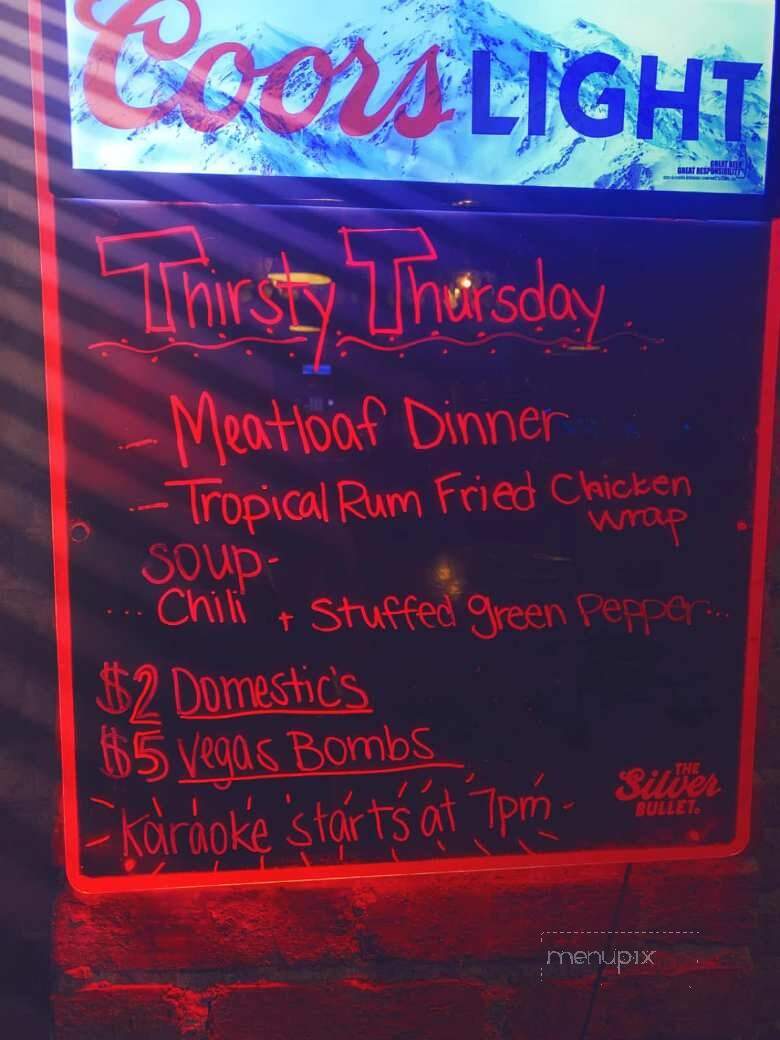 Coors LIGHT
GREAT BEER
GREAT RESPONSIBILITY
Thirsty Thursday
- Meatloaf Dinner
- Tropical Rum Fried Chicken
wrap
Soup-
... Chili + Stuffed green Pepper...
$2 Domestic's
$5 Vegas Bombs
Karaoke starts at 7pm
THE
Silver
BULLET.
menupix